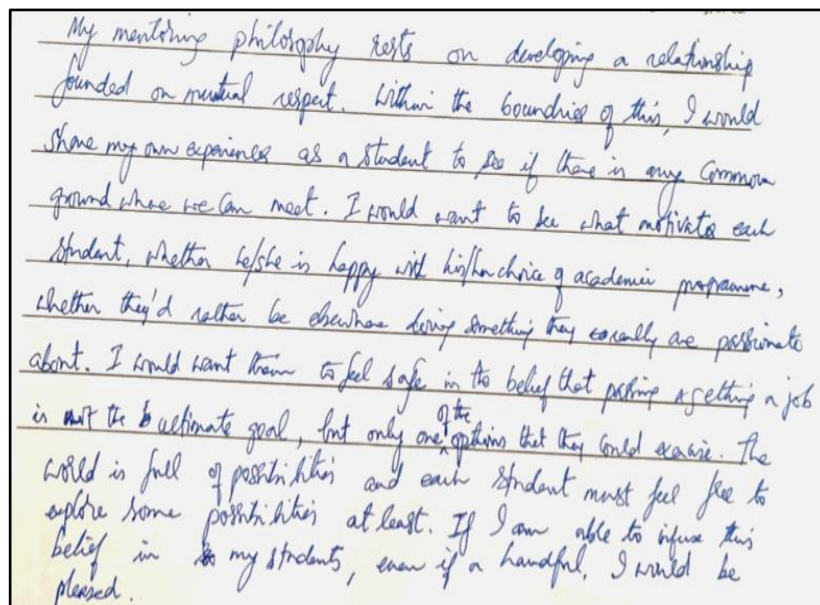 My mentoring philosophy rests on developing a relationship
founded on mutual respect. Within the boundries of this, I would
share my own experiences as a student to see if there is any common
ground where we can meet. I would want to see what motivates each
student, whether he/she is happy with his/her choice of academic programme,
whether they'd rather be elsewhere doing something they really are passionate
about. I would want them to feel safe in the belief that passing & getting a job
is not the ultimate goal, but only one of the options that they could exercise. The
world is full of possibilities and each student must feel free to
explore some possibilities at least. If I am able to infuse this
belief in my students, even if a handful, I would be
pleased.